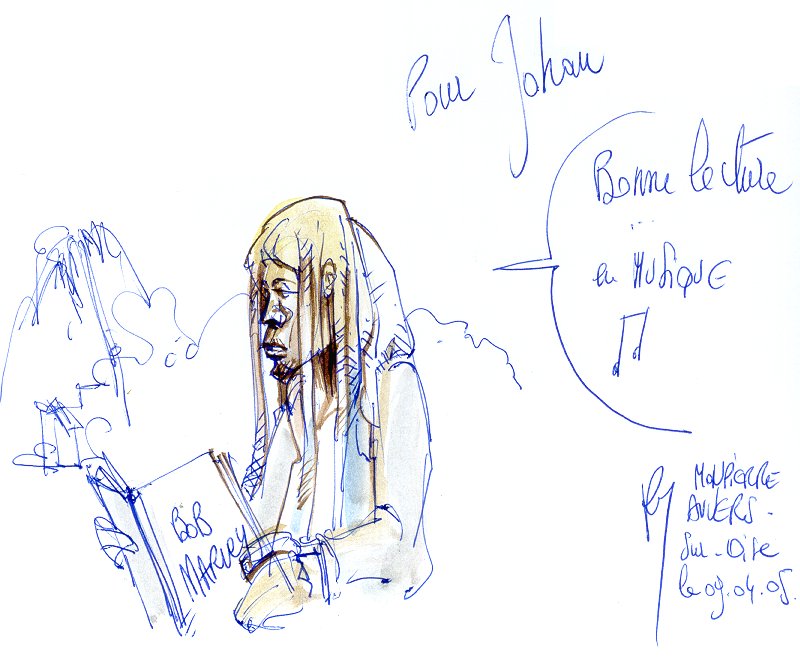 Pour Johan
Bonne lecture
...
en MUSIQUE
BOB
MARLEY
MONPIERRE
AUVERS -
Sur - Oise
le 09.04.05.